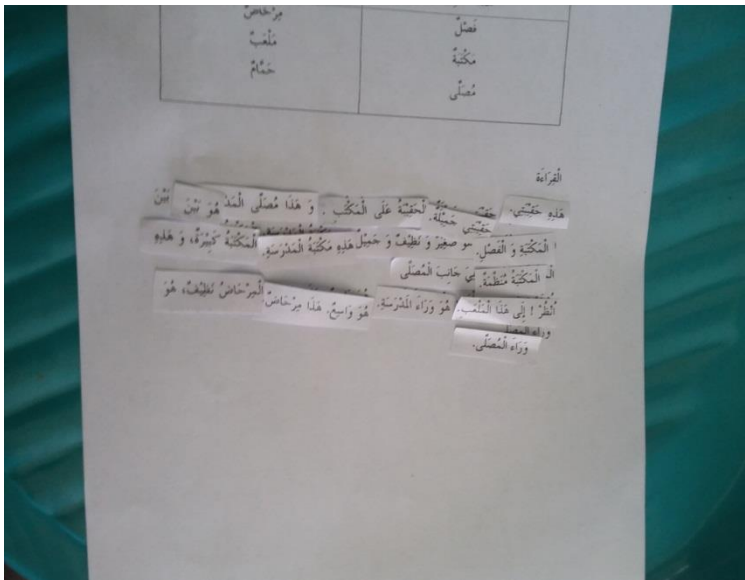 فَصْلٌ مِرْحَاضٌ
مَكْتَبَةٌ مَلْعَبٌ
مُصَلًّى حَمَّامٌ
الْقِرَاءَة
هَذِهِ حَقِيْبَتِي. حَقِيْبَتِي جَمِيْلَةٌ. الْحَقِيْبَةُ عَلَى الْمَكْتَبِ. وَ هَذَا مُصَلَّى الْمَدْ هُوَ بَيْنَ بَيْنَ
الْمَكْتَبَةِ وَ الْفَصْلِ. هو صَغِيْرٌ وَ نَظِيْفٌ وَ جَمِيْلٌ هَذِهِ مَكْتَبَةُ الْمَدْرَسَةِ. الْمَكْتَبَةُ كَبِيْرَةٌ، وَ هَذِهِ
الْمَكْتَبَةُ مُنَظَّمَةٌ. جَانِبَ الْمُصَلَّى
أُنْظُرْ ! إِلَى هَذَا الْمَلْعَبِ. هُوَ وَرَاءَ الْمَدْرَسَةِ. هُوَ وَاسِعٌ. هَذَا مِرْحَاضٌ الْمِرْحَاضُ نَظِيْفٌ، هُوَ
وَرَاءَ الْمُصَلَّى.